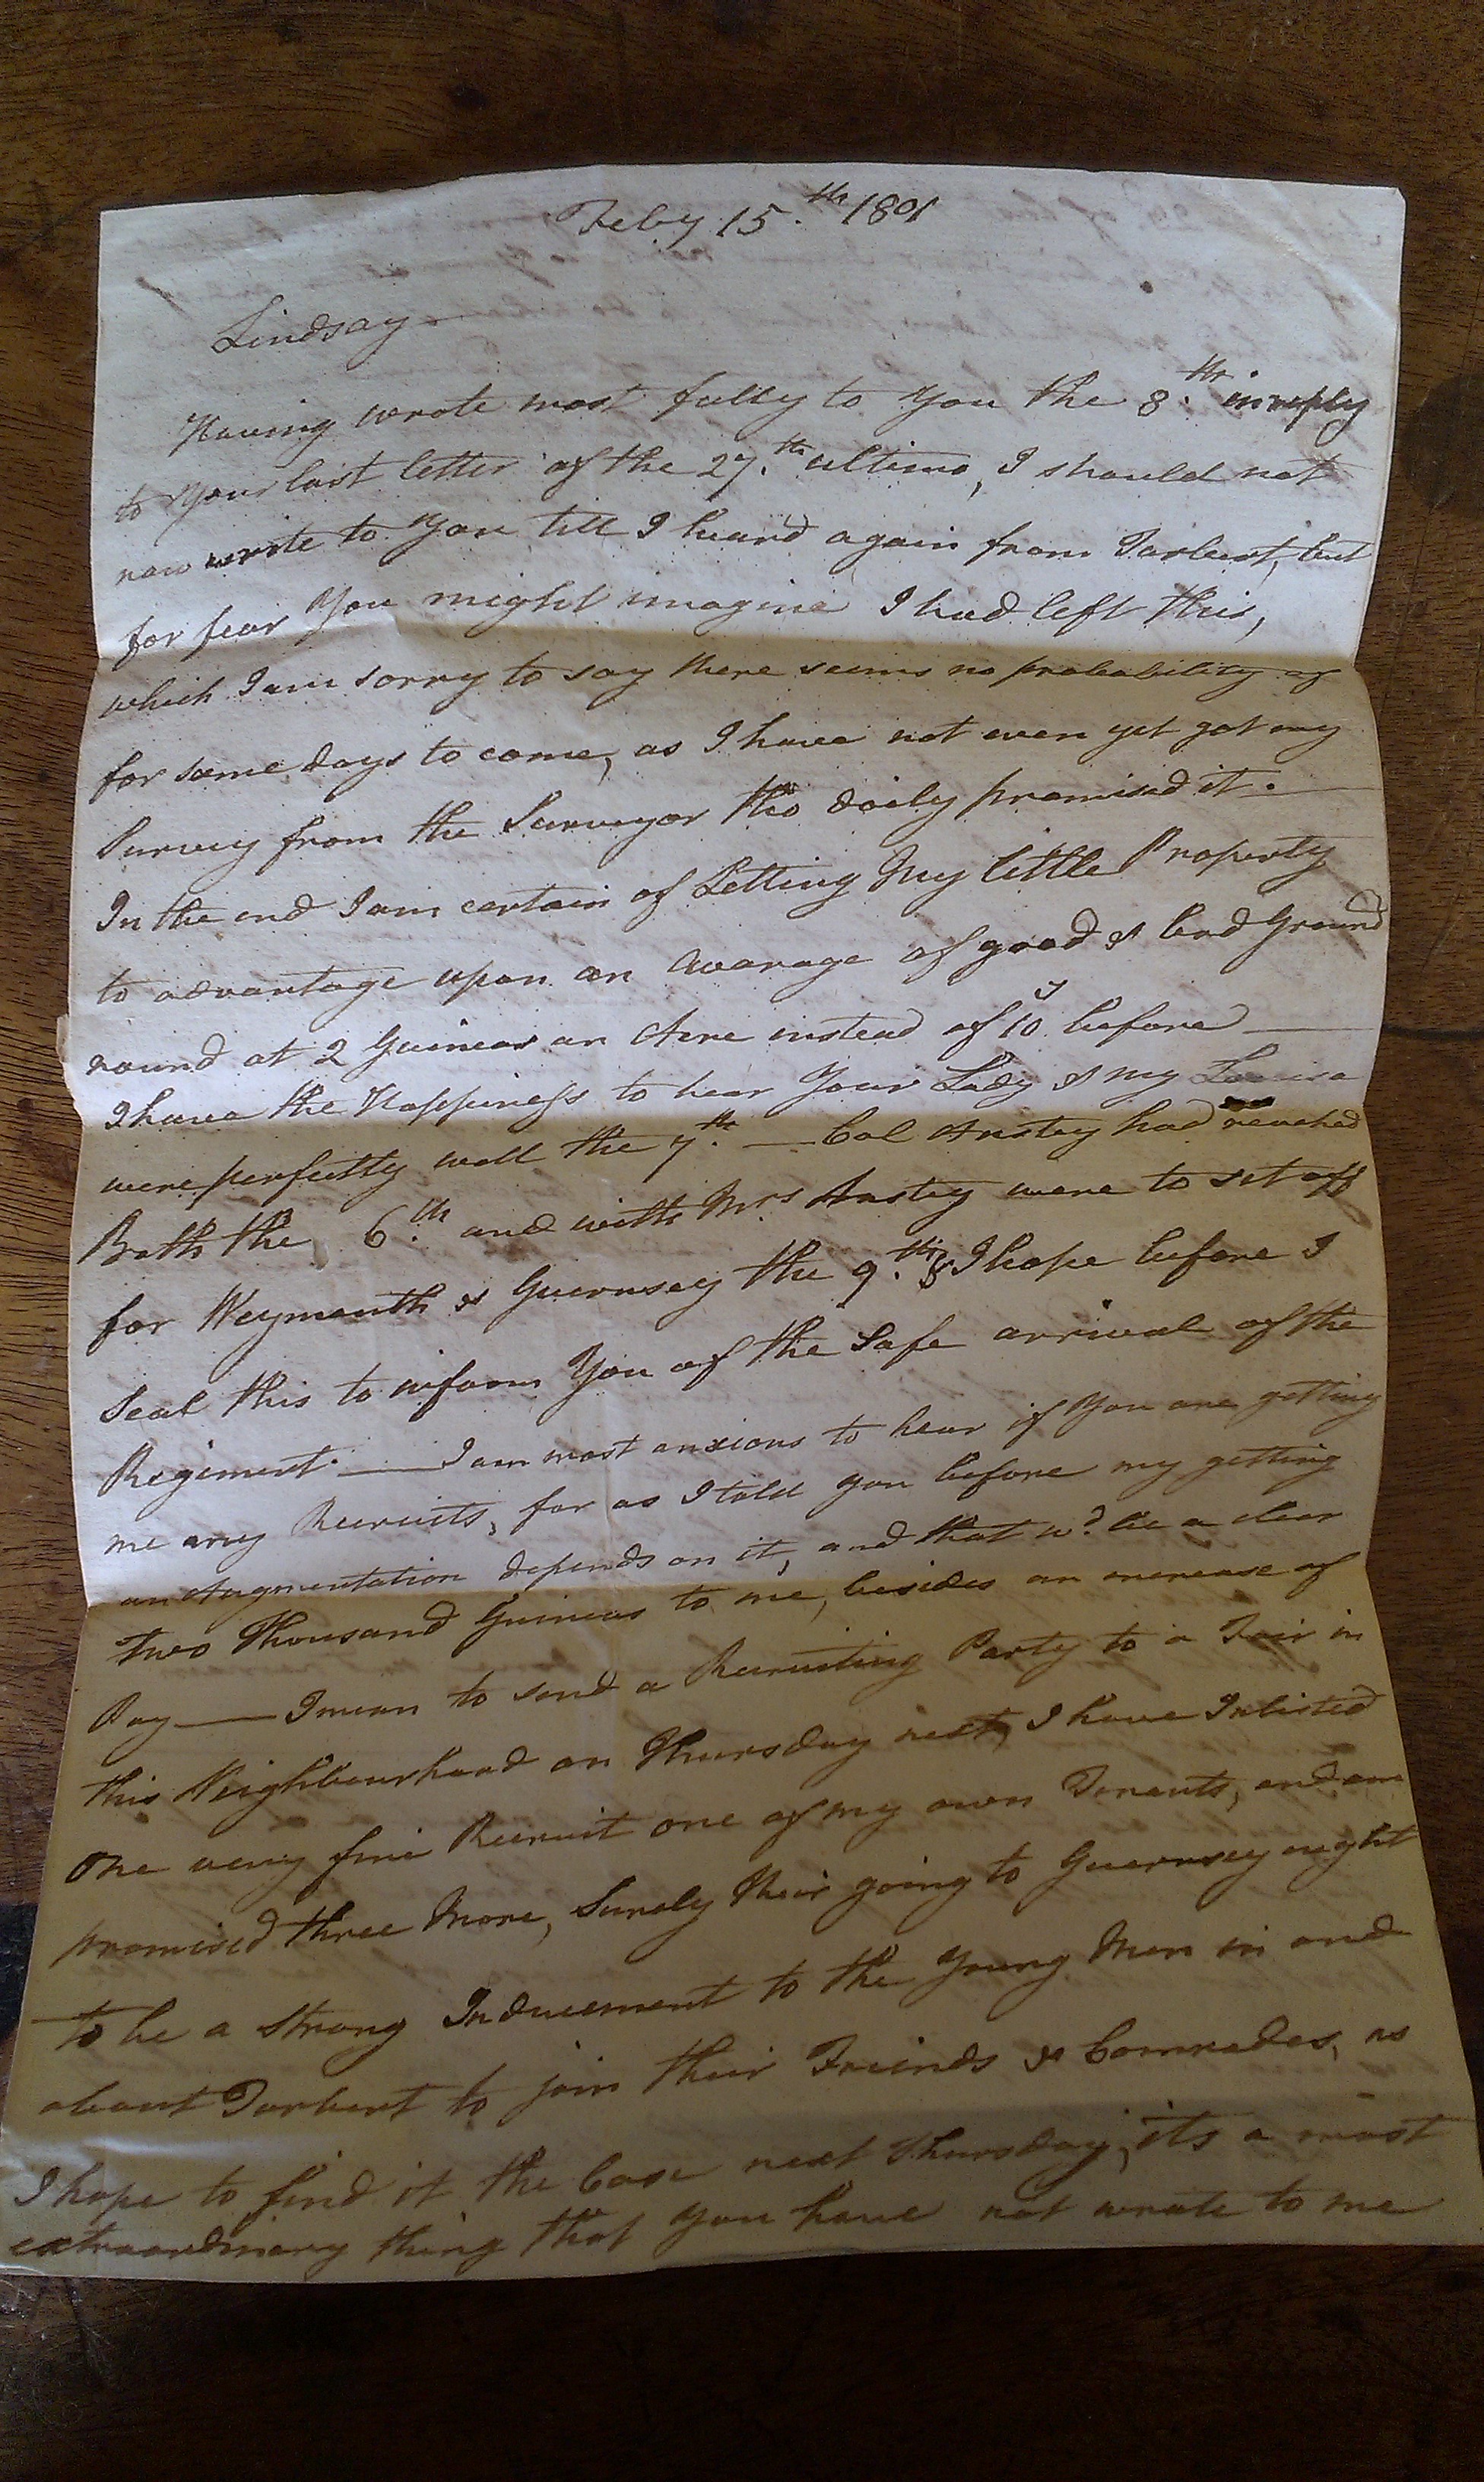 Feby 15.th 1801
Lindsay
Having wrote most fully to You the 8.th in reply
to Your last letter of the 27.th ultimo, I should not
now write to You till I heard again from Tarbert, but
for fear You might imagine I had left this,
which I am sorry to say there seems no probability of
for some days to come, as I have not even yet got my
Survey from the Surveyor tho daily promised it.
In the end I am certain of Letting My little Property
to advantage upon an Avarage of good & bad Ground
round at 2 Guineas an Acre instead of 10 before
I have the Happiness to hear Your Lady & my Louisa
were perfectly well the 7.th — Col Anstey had reached
Bath the 6.th and with Mrs Anstey were to set off
for Weymouth & Guernsey the 9.th & I hope before I
Seal this to inform You of the Safe arrival of the
Regiment. — I am most anxious to hear if You are getting
me any Recruits, for as I told you before my getting
an Augmentation depends on it, and that wd. be a clear
two Thousand Guineas to me, besides an increase of
Pay — I mean to send a Recruiting Party to a Fair in
this Neighbourhood on Thursday next, I have Inlisted
One very fine Recruit one of my own Tenants, and am
promised three More, Surely their going to Guernsey ought
to be a strong Inducement to the Young Men in and
about Tarbert to join their Freinds & Comrades, as
I hope to find it the Case next Thursday, its a most
extraordinary thing that You have not wrote to me